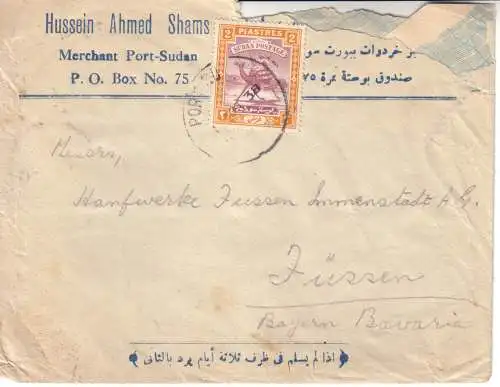 Hussein Ahmed Shams
Merchant Port-Sudan
P. O. Box No. 75
خردوات ببورت سو
صندوق بوستة نمرة ٧٥
2 PIASTRES 2
SUDAN POSTAGE
PORT
Messrs,
Hanfwerke Füssen Immenstadt A. G.
Füssen
Bayern Bavaria
اذا لم يسلم في ظرف ثلاثة أيام يرد بالثانى